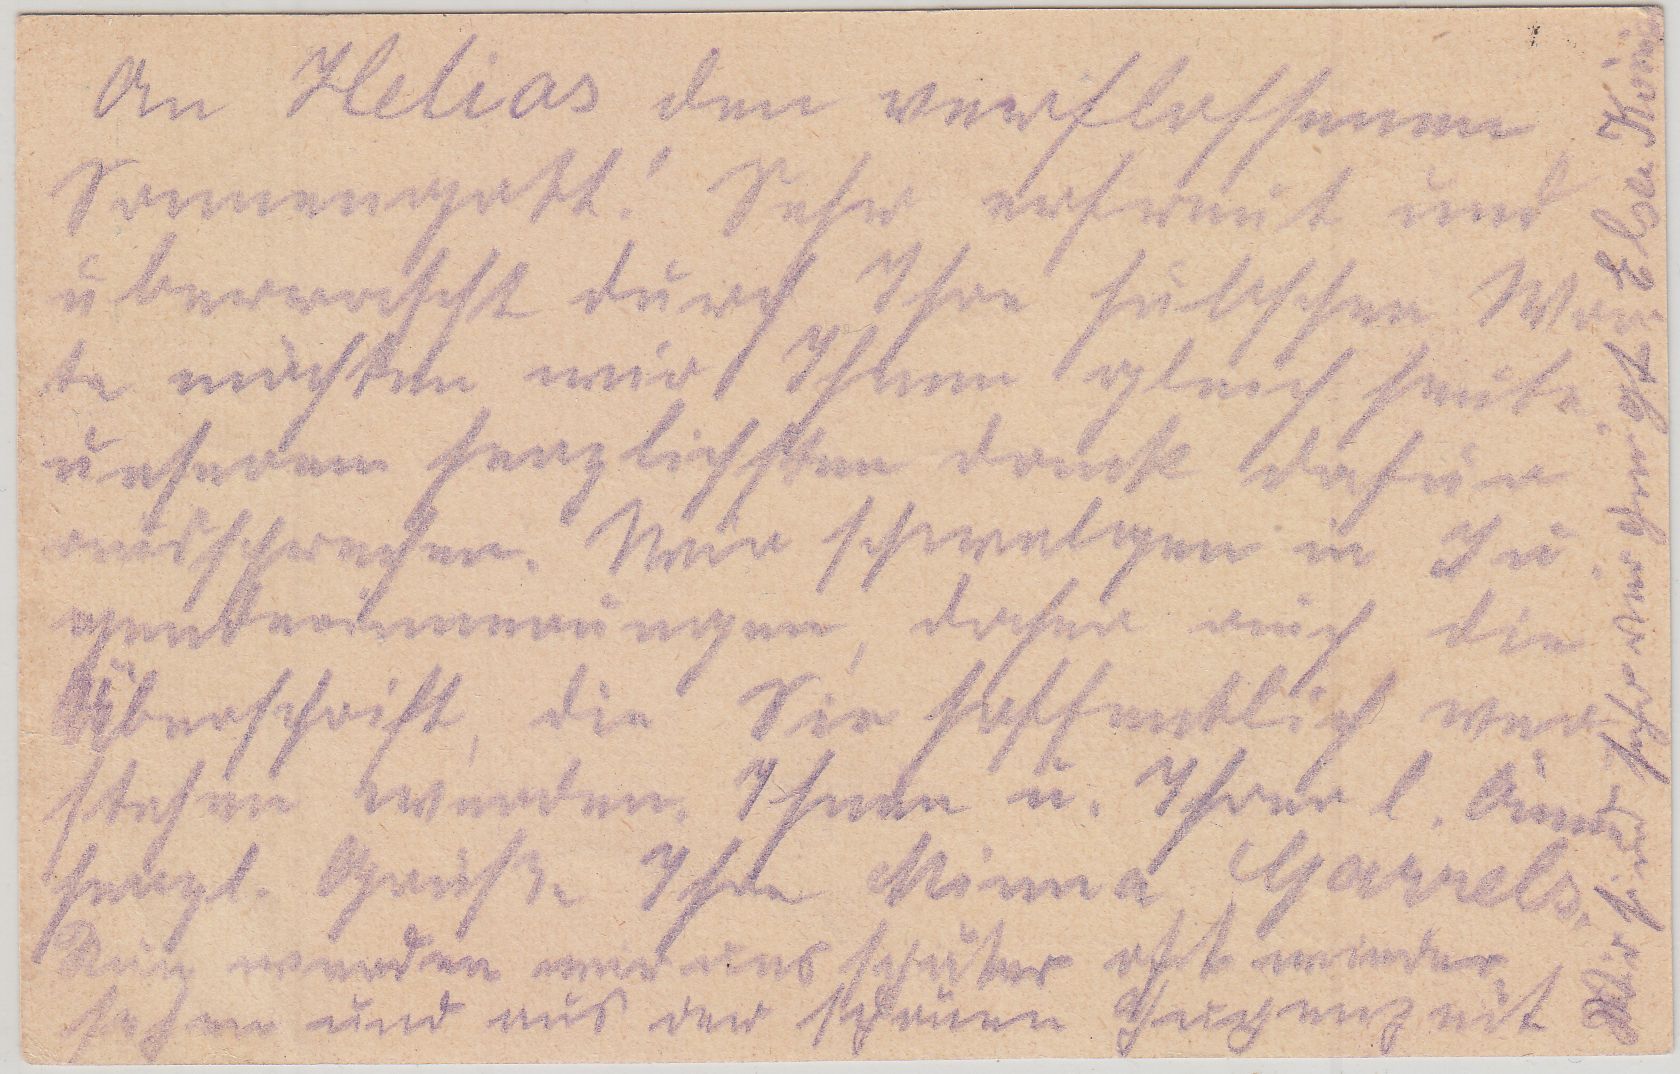 An Helias den verflossenen
Sonnengott! Sehr erfreut und
überrascht durch Ihre hübschen Wor
te möchten wir Ihnen gleich heute
unseren herzlichsten Dank dafür
aussprechen. Wir schwelgen in Ju
genderinnerungen, daher auch die
Überschrift, die Sie hoffentlich ver
stehen werden. Ihnen u. Ihrer l.
herzl. Grüße Ihre Minna Garrels.
werden wir uns später oft wieder
sehen und aus der schönen Jugendzeit
Wir sind sehr Else König